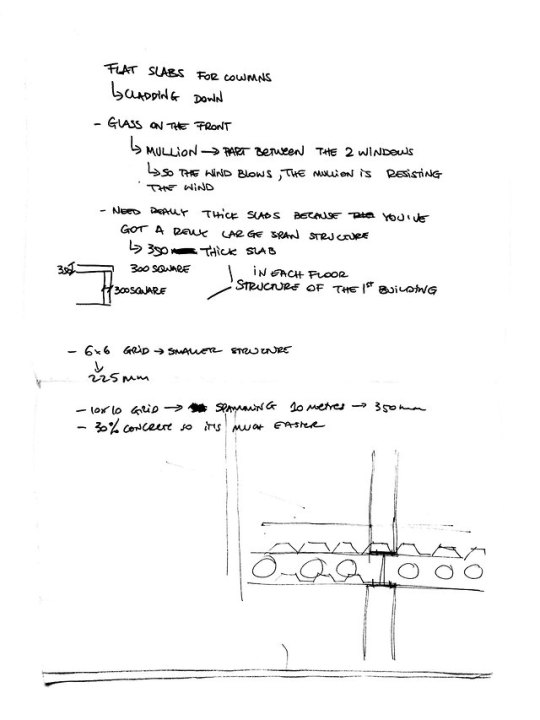 FLAT SLABS FOR COLUMNS
↳ CLADDING DOWN
- GLASS ON THE FRONT
↳ MULLION → PART BETWEEN THE 2 WINDOWS
↳ SO THE WIND BLOWS, THE MULLION IS RESISTING
THE WIND
- NEED REALLY THICK SLABS BECAUSE YOU'VE
GOT A REALLY LARGE SPAN STRUCTURE
↳ 350 THICK SLAB
350 300 SQUARE IN EACH FLOOR
300 SQUARE STRUCTURE OF THE 1ST BUILDING
- 6x6 GRID → SMALLER STRUCTURE
↓
225mm
- 10x10 GRID → SPANNING 10 METRES → 350mm
- 30% CONCRETE SO IT'S MUCH EASIER